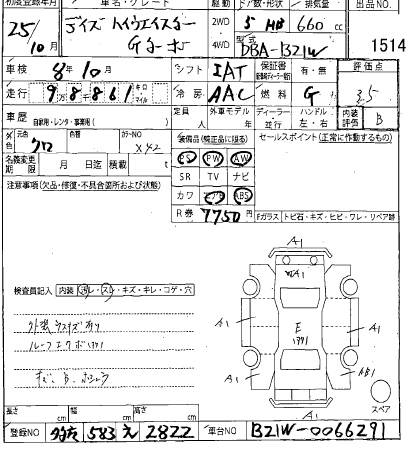 初度登録年月 車名・グレード 駆動 ドア数・形状 排気量 出品NO
25/10月 デイズ ハイウエイスター 2WD 5 HB 660cc
Gターボ 4WD 型式 DBA-B21W 1514
車検 8年10月 シフト IAT 保証書 有・無 評価点
走行 9万8861 キロ マイル 冷房 AAC 燃料 G 3.5
車歴 自家用・レンタ・事業用( ) 外車モデル ディーラー 並行 ハンドル 左・右 内装評価 B
外色 元色 クロ 色替 カラーNO X42
装備品(純正品に限る) セールスポイント(正常に作動するもの)
名義変更期限 月 日迄 積載量 t
PS PW AW
SR TV ナビ
カワ エアB ABS
R券 7750円
注意事項(欠品・修復・不具合箇所および状態)
Fガラス トビ石・キズ・ヒビ・ワレ・リペア跡
A1
検査員記入 内装 汚レ・スレ・キズ・キレ・コゲ・穴
外装ウスキズあり
ルーフエクボ
A1 E A1
A1
A1
スペア
長さ cm 幅 cm 高さ cm
登録NO 583 え 2822 車台NO B21W-0066291